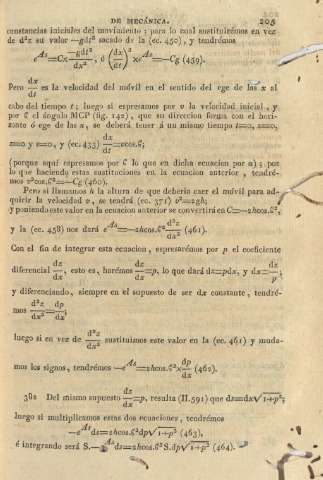 DE MECÁNICA. 205
constantes iniciales del movimiento; para lo cual sustituirémos en vez
de d²z su valor —gdt² sacado de la (ec. 450), y tendrémos
e^{As}=Cx(—gdt²/dx²), ó (dx/dt)²×e^{As}=—Cg (459).
Pero dx/dt es la velocidad del móvil en el sentido del ege de las x al
cabo del tiempo t; luego si espresamos por v la velocidad inicial, y
por 6 el ángulo MCP (fig. 142), que su direccion forma con el hori-
zonte ó ege de las x, se deberá tener á un mismo tiempo t=0, s=0,
x=0 y z=0, y (ec. 433) dx/dt=vcos.6;
(porque aquí espresamos por 6 lo que en dicha ecuacion por α); por
lo que haciendo estas sustituciones en la ecuacion anterior, tendré-
mos v²cos.6²=—Cg (460).
Pero si llamamos h la altura de que deberia caer el móvil para ad-
quirir la velocidad v, se tendrá (ec. 371) v²=2gh;
y poniendo este valor en la ecuacion anterior se convertirá en C=—2hcos.6²,
y la (ec. 458) nos dará e^{As}=—2hcos.6² d²z/dx² (461).
Con el fin de integrar esta ecuacion, espresarémos por p el coeficiente
diferencial dz/dx, esto es, harémos dz/dx=p, lo que dará dz=pdx, y dx=dz/p;
y diferenciando, siempre en el supuesto de ser dx constante, tendré-
mos d²z/dx²=dp/dx;
luego si en vez de d²z/dx² sustituimos este valor en la (ec. 461) y muda-
mos los signos, tendrémos —e^{As}=2hcos.6²×dp/dx (462).
382 Del mismo supuesto dz/dx=p, resulta (II.591) que ds=dx√1+p²;
luego si multiplicamos estas dos ecuaciones, tendrémos
—e^{As}ds=2hcos.6²dp√1+p² (463),
é integrando será S.—e^{As}ds=2hcos.6²S.dp√1+p² (464).